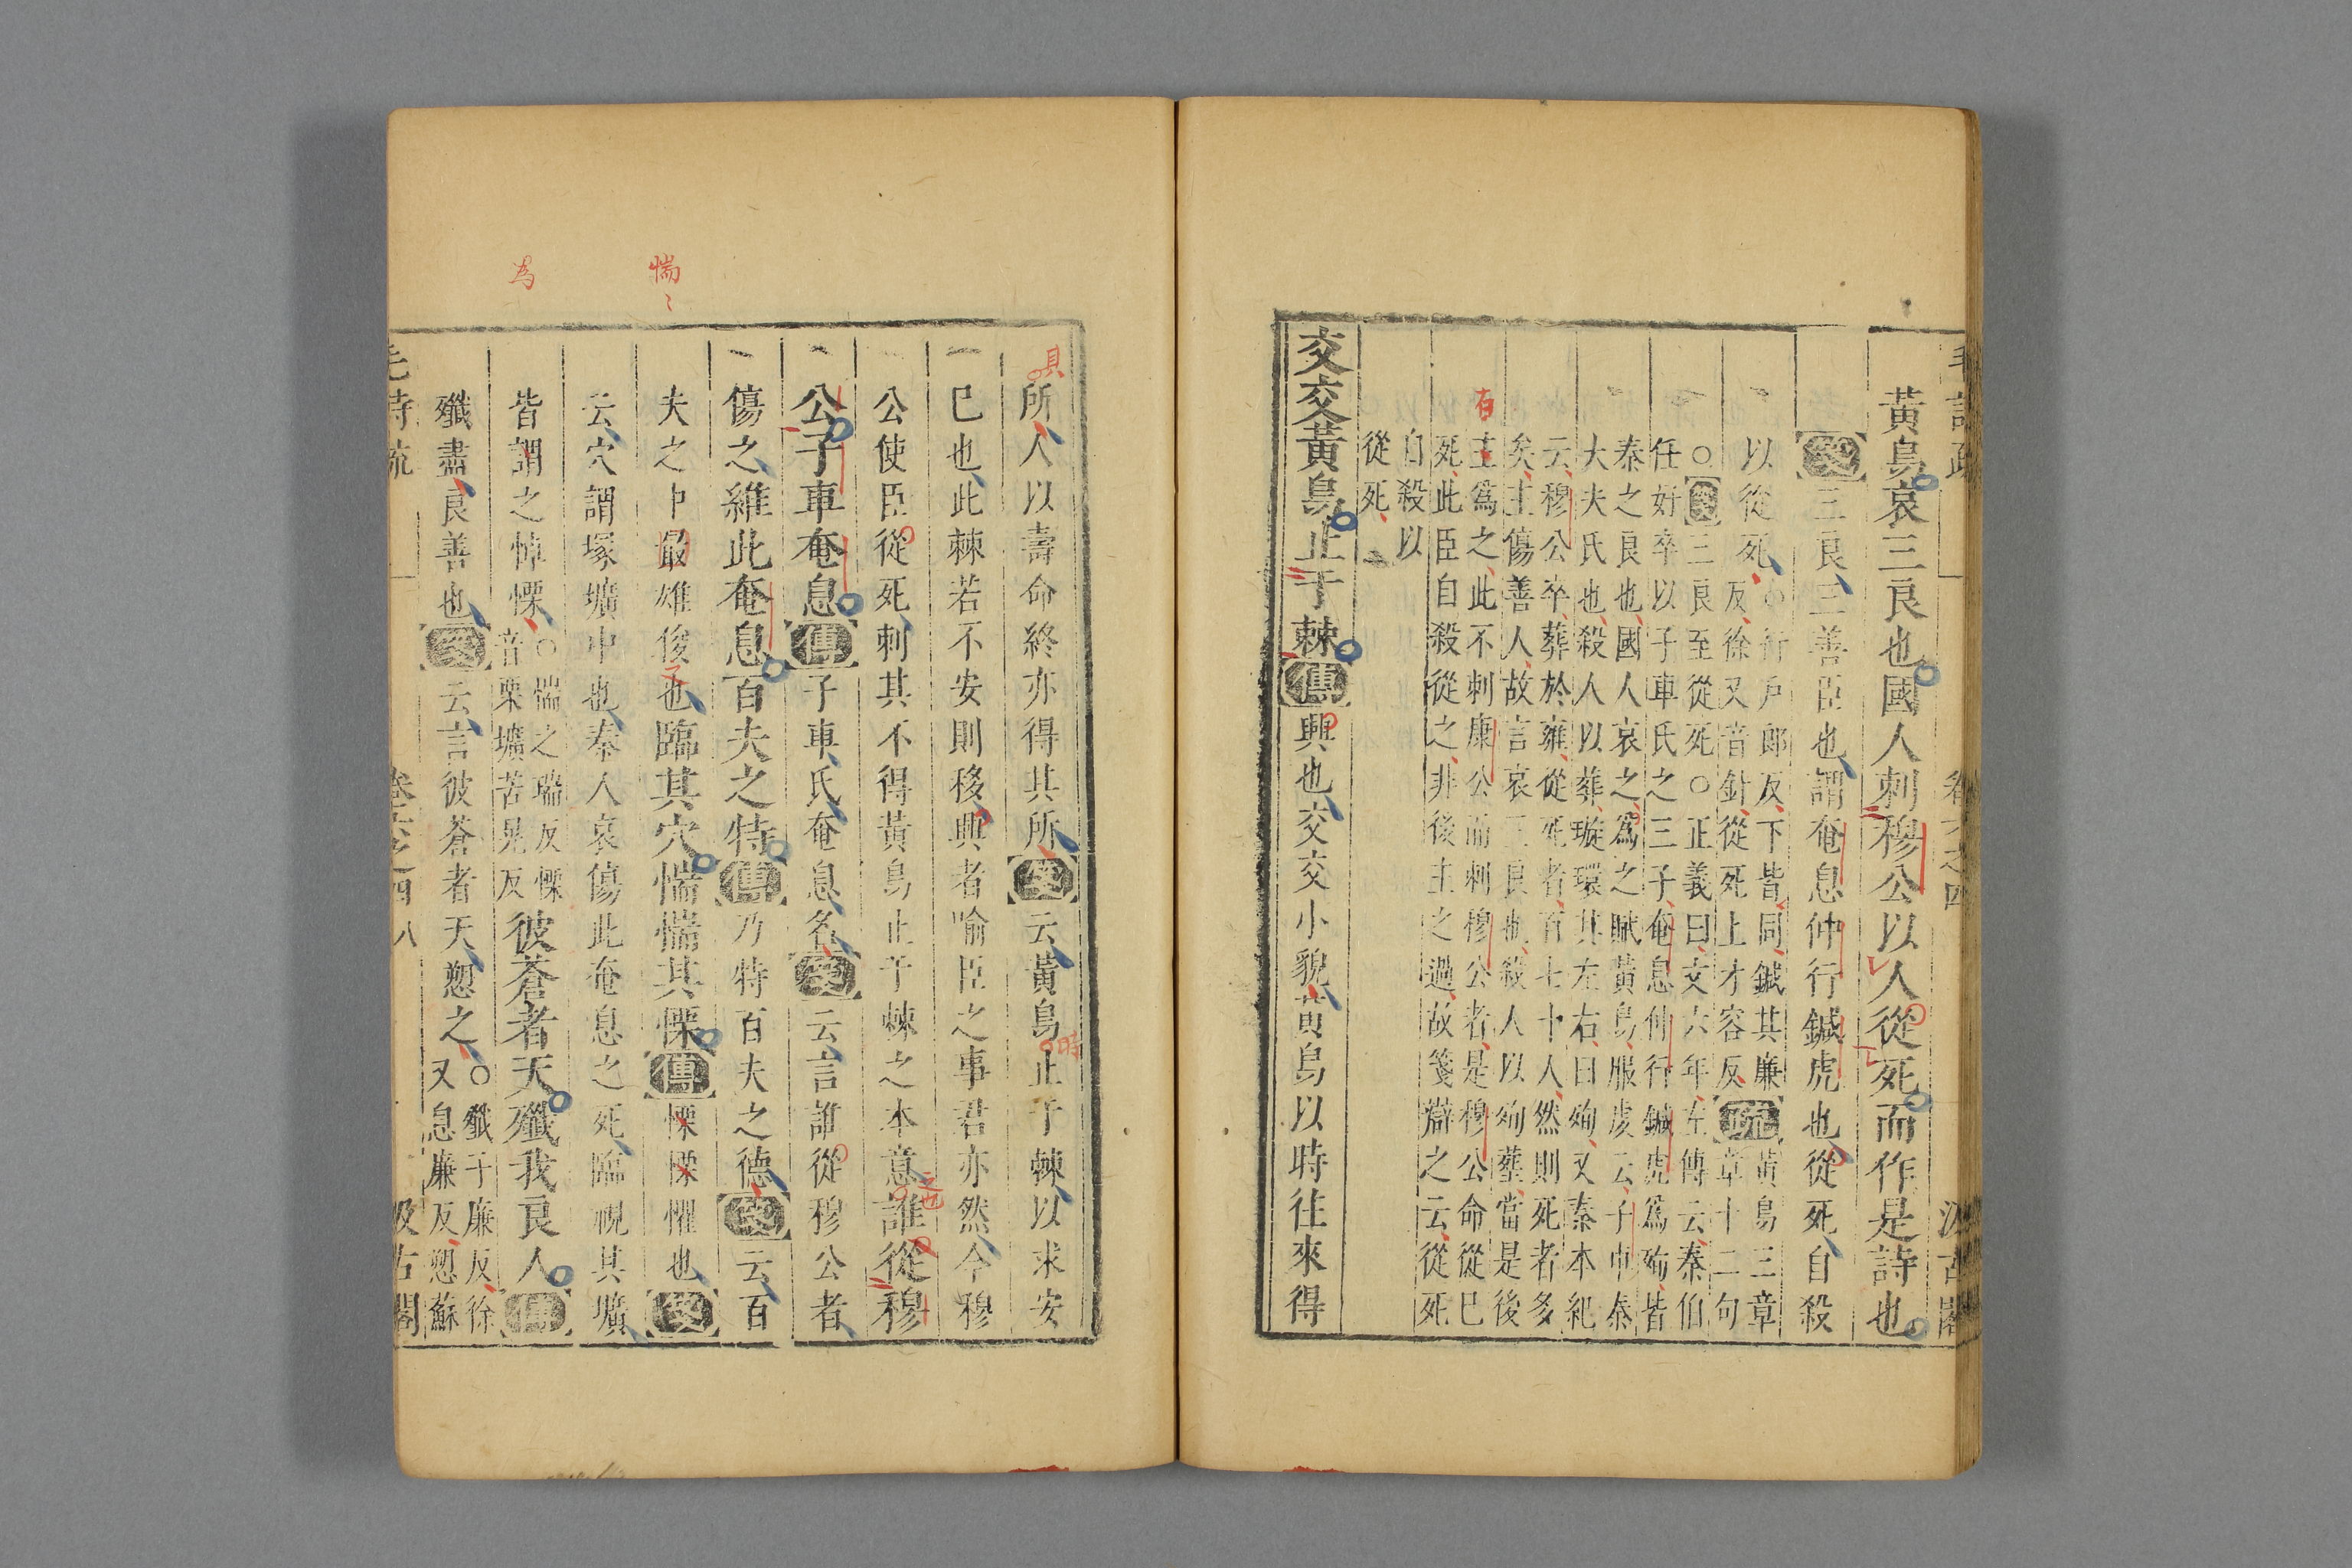 毛詩疏 卷六之四 汲古閣
黃鳥哀三良也國人刺穆公以人從死而作是詩也
箋三良三善臣也謂奄息仲行鍼虎也從死自殺
以從死
○行戶郎反下皆同鍼其廉
反徐又音針從死上才容反
疏
黃鳥三章
章十二句
○箋三良至從死○正義曰文六年左傳云秦伯
任好卒以子車氏之三子奄息仲行鍼虎爲殉皆
秦之良也國人哀之爲之賦黃鳥服虔云子車秦
大夫氏也殺人以葬璇環其左右曰殉又秦本紀
云穆公卒葬於雍從死者百七十人然則死者多
矣主傷善人故言哀三良也殺人以殉葬當是後
有
主爲之此不刺康公而刺穆公者是穆公命從已
死此臣自殺從之非後主之過故箋辯之云從死
自殺以
從死
交交黃鳥止于棘傳興也交交小貌黃鳥以時往來得
具
所人以壽命終亦得其所箋云黃鳥止于棘以求安
時
已也此棘若不安則移興者喻臣之事君亦然今穆
公使臣從死刺其不得黃鳥止于棘之本意誰從穆
之也
公子車奄息傳子車氏奄息名箋云言誰從穆公者
傷之維此奄息百夫之特傳乃特百夫之德箋云百
惴〻
夫之中最雄俊也臨其穴惴惴其慄傳慄慄懼也箋
云穴謂塚壙中也秦人哀傷此奄息之死臨視其壙
為
皆謂之悼慄
○惴之瑞反慄
音栗壙苦晃反
彼蒼者天殲我良人傳
殲盡良善也箋云言彼蒼者天愬之
○殲子廉反徐
又息廉反愬蘇
毛詩疏 卷六之四 八 汲古閣